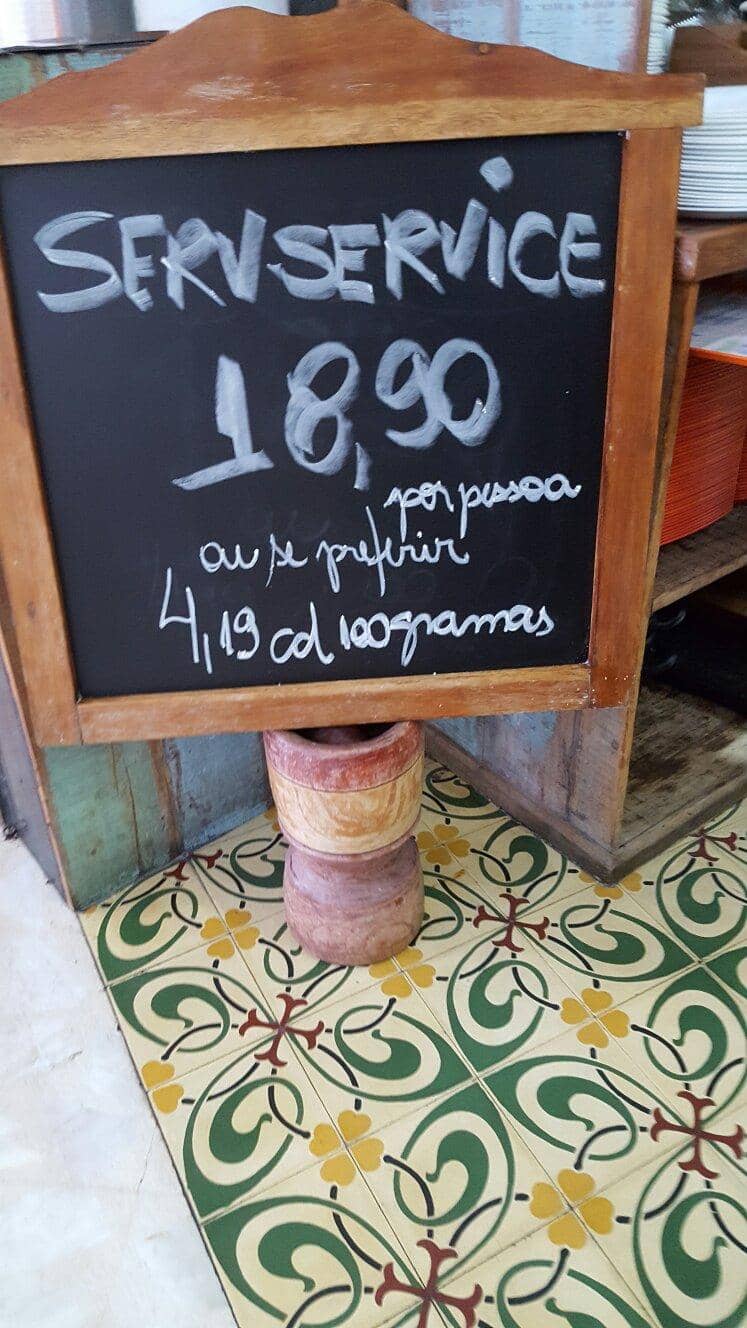 SERVSERVICE
18,90
por pessoa
ou se preferir
4,19 cd 100gramas